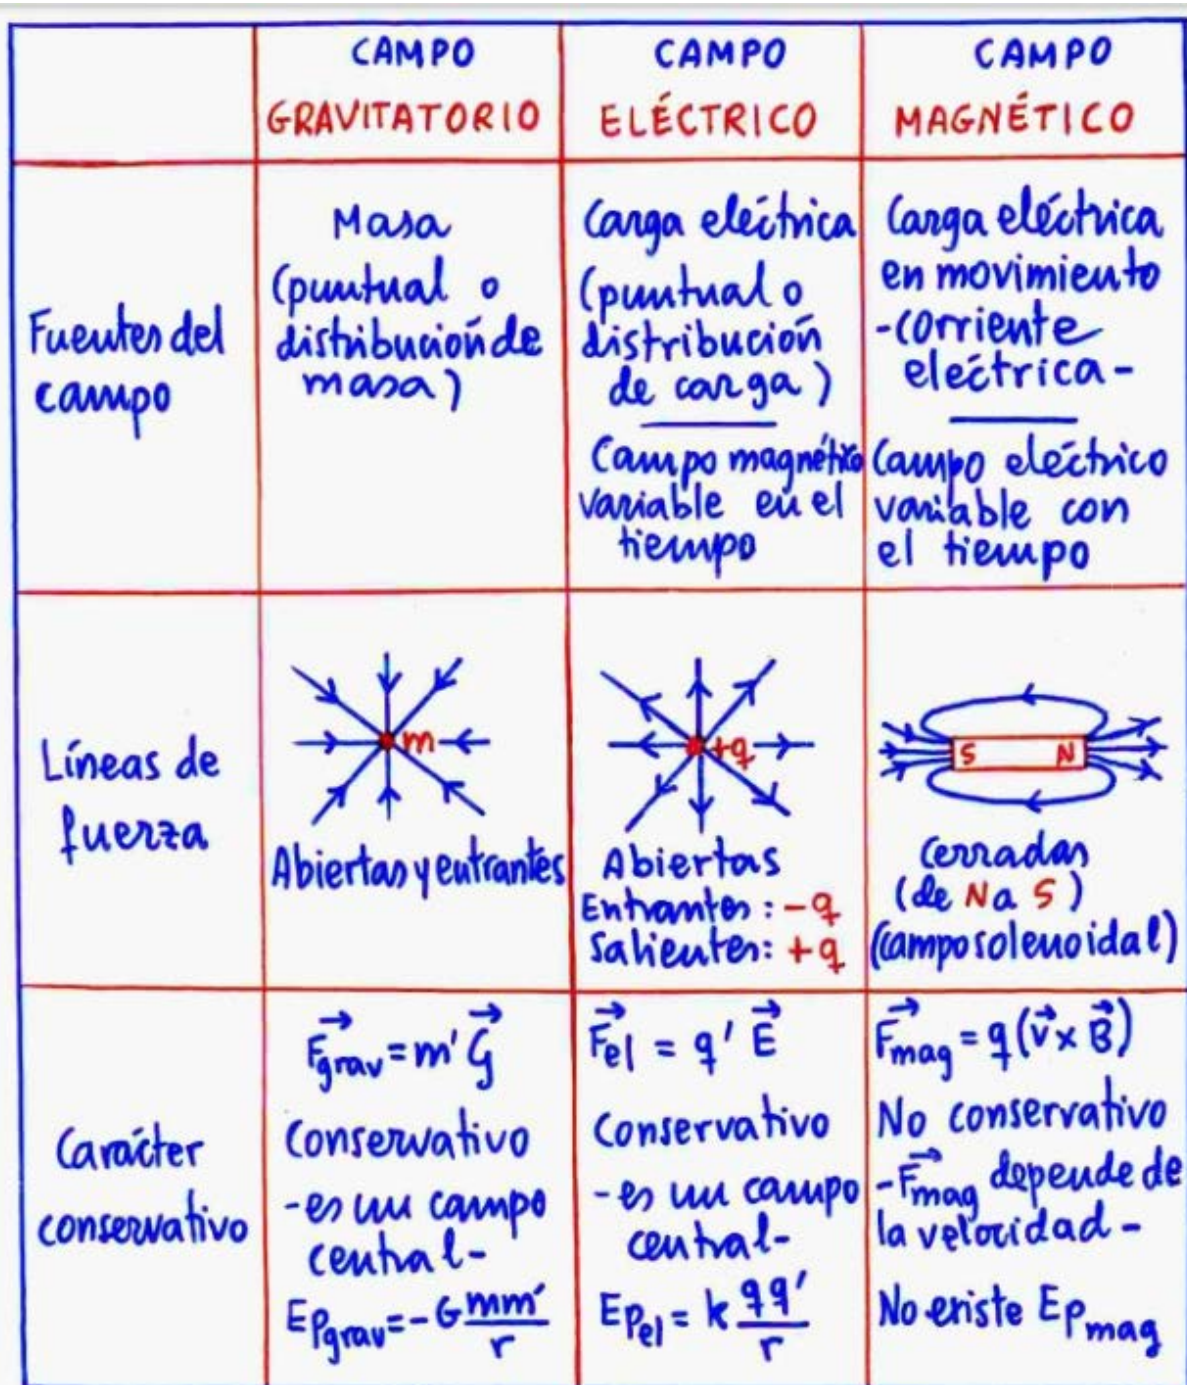 CAMPO
GRAVITATORIO
CAMPO
ELÉCTRICO
CAMPO
MAGNÉTICO
Fuentes del
campo
Masa
(puntual o
distribución de
masa)
Carga eléctrica
(puntual o
distribución
de carga)
Campo magnético
variable en el
tiempo
Carga eléctrica
en movimiento
-corriente
eléctrica-
Campo eléctrico
variable con
el tiempo
Líneas de
fuerza
m
Abiertas y entrantes
+q
Abiertas
Entrantes: -q
Salientes: +q
S N
Cerradas
(de N a S)
(campo solenoidal)
Carácter
conservativo
F⃗grav = m' G⃗
Conservativo
-es un campo
central-
Epgrav = -G mm'/r
F⃗el = q' E⃗
Conservativo
-es un campo
central-
Epel = k qq'/r
F⃗mag = q(v⃗ x B⃗)
No conservativo
-F⃗mag depende de
la velocidad-
No existe Epmag